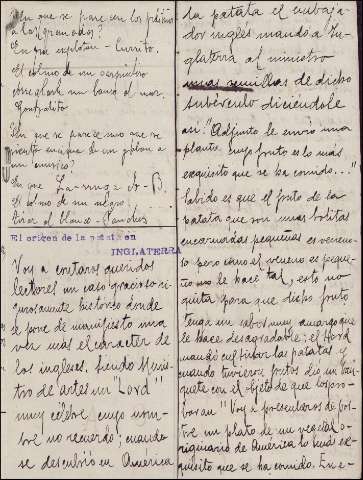 En que se parecen los pájaros
a los granados?
En que explotan - Currito.
El colmo de un carpintero
construir un banco al mar.
Montalito
En que se parece uno que se
sienta encima de un jabon a
un musico?
En que La-mo-a Si-B.
El colmo de un negro
tirar al blanco - Panchés
El origen de la patata en
INGLATERRA
Voy a contaros queridos
lectores un caso gracioso ri-
gurosamente historico donde
se pone de manifiesto una
vez más el caracter de
los ingleses, siendo Minis-
tro de artes un "Lord"
muy celebre cuyo nom-
bre no recuerdo; cuando
se descubrió en América
la patata el embaja-
dor inglés mandó a In-
glaterra al ministro
unas semillas de dicho
tubérculo diciendole
así: "Adjunto le envio una
planta cuyo fruto es lo mas
exquisito que se ha comido..."
Sabido es que el fruto de la
patata que son unas bolitas
encarnadas pequeñas es veneno-
so pero como el veneno es peque-
ño no le hace tal, esto no
quita para que dicho fruto
tenga un sabor muy amargo que
le hace desagradable; el Lord
mandó cultibar las patatas y
cuando tuvieron frutos dio un ban-
quete con el objeto de que los pro-
baran "Voy a presentaros de pos-
tre un plato de un vegetal o-
riginario de America lo más ex-
quisito que se ha comido. En e-